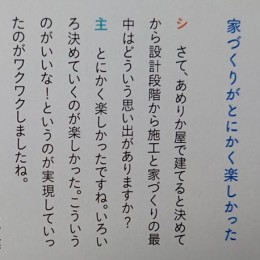 家づくりがとにかく楽しかった
シ　さて、あめりか屋で建てると決めて
から設計段階から施工と家づくりの最
中はどういう思い出がありますか？
主　とにかく楽しかったですね。いろい
ろ決めていくのが楽しかった。こういう
のがいいな！というのが実現していっ
たのがワクワクしましたね。